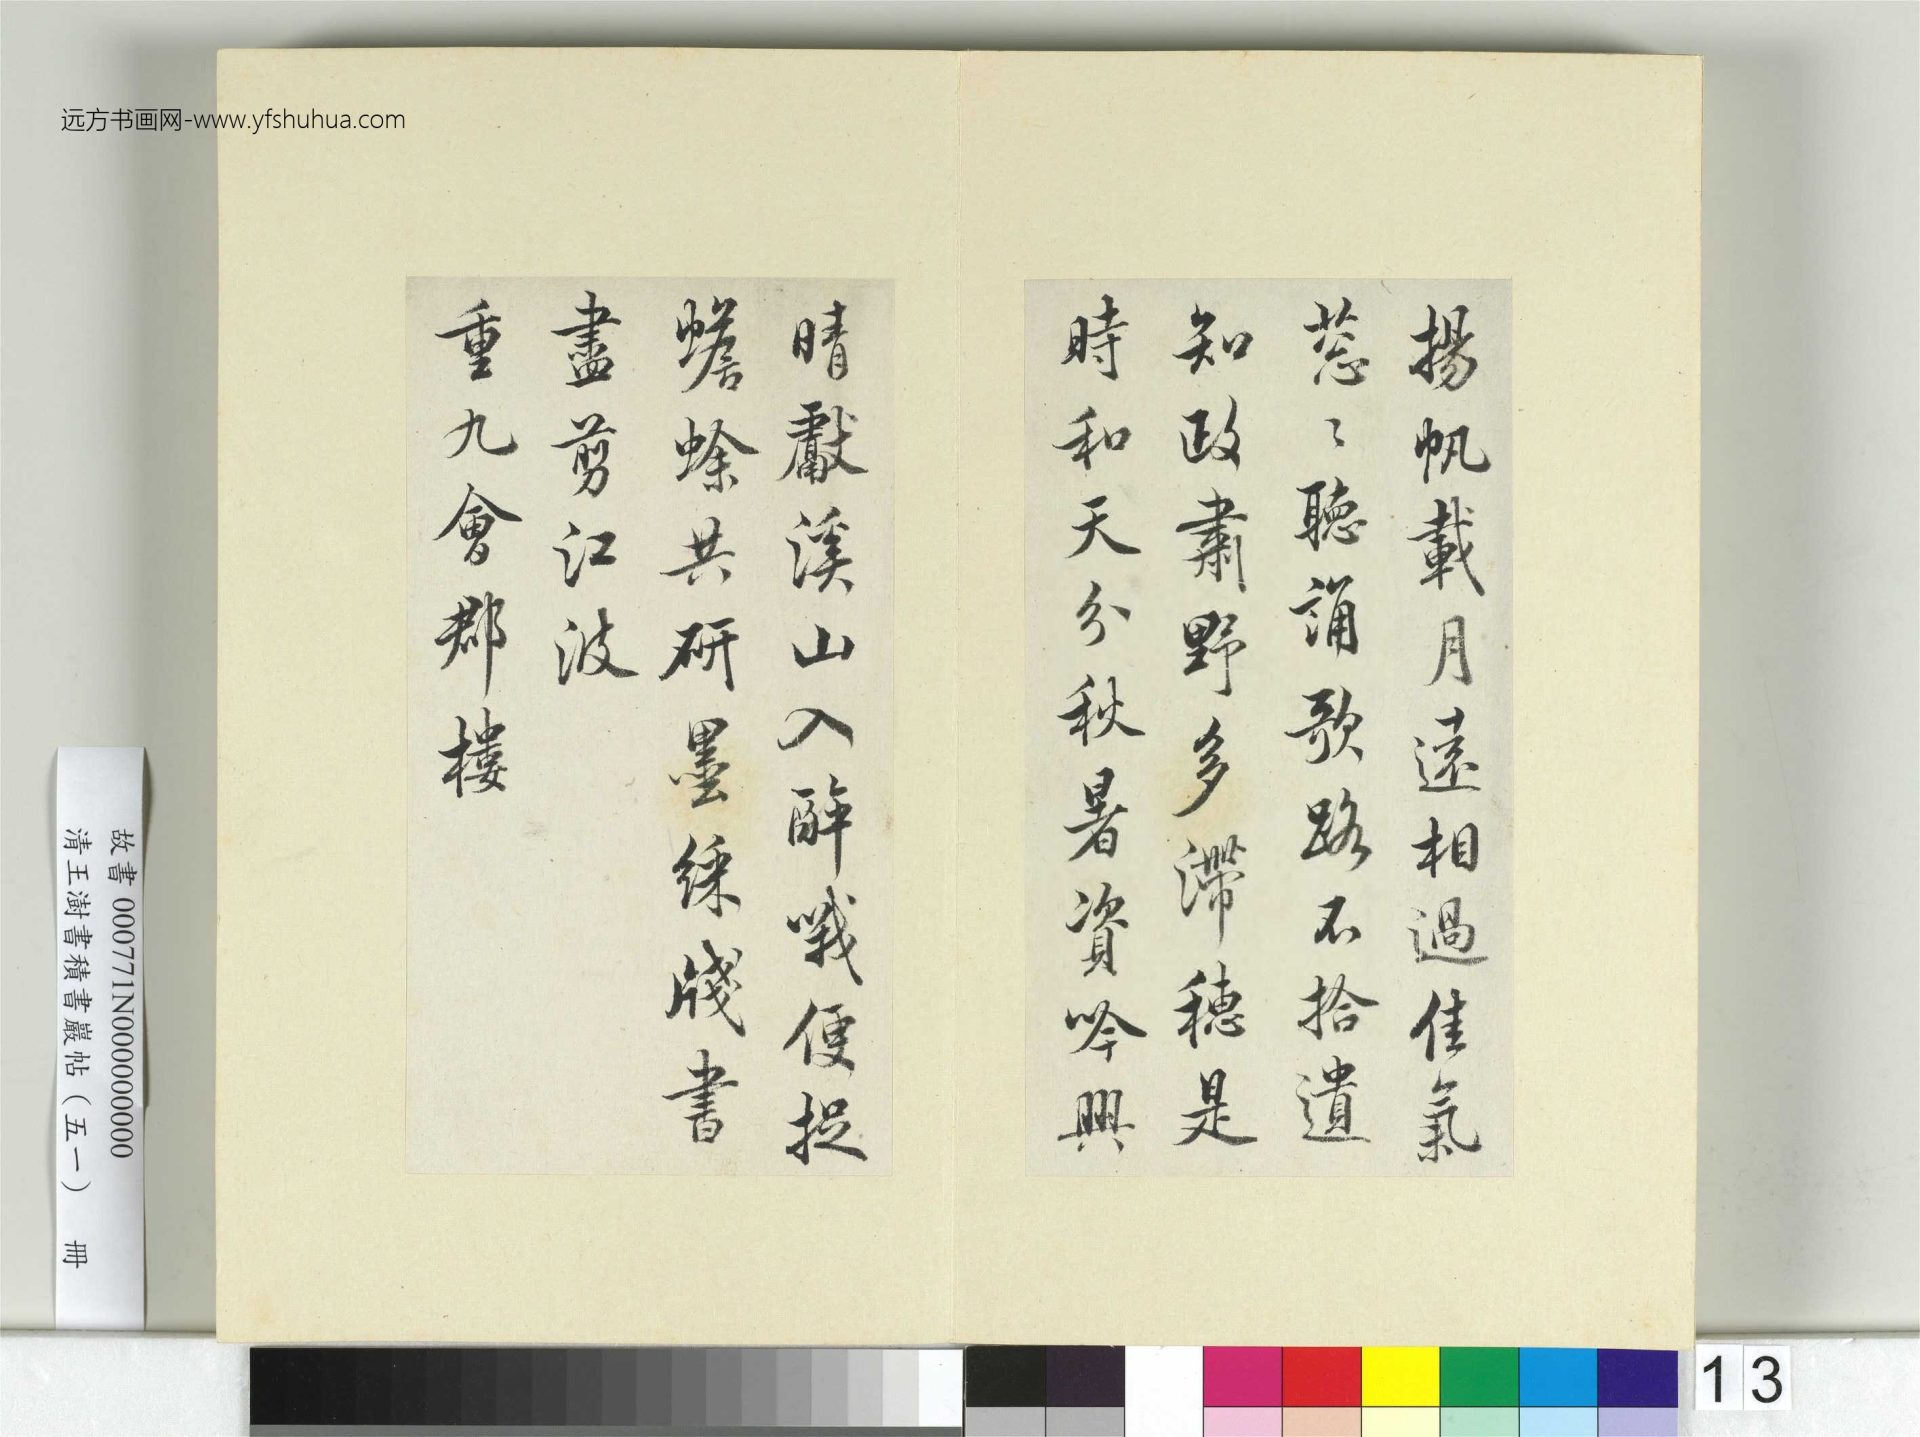 远方书画网-www.yfshuhua.com
揚帆載月遠相過佳氣
葱〻聽誦歌路不拾遺
知政肅野多滯穗是
時和天分秋暑資吟興
晴獻溪山入醉哦便捉
蟾蜍共研墨綵牋書
盡剪江波
重九會郡樓
故書 000771N000000000
清王澍書積書巖帖（五一） 冊
13